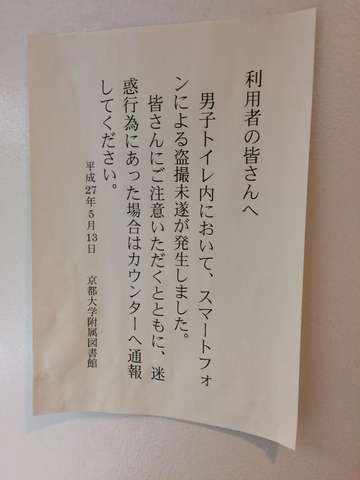 利用者の皆さんへ
男子トイレ内において、スマートフォ
ンによる盗撮未遂が発生しました。
皆さんにご注意いただくとともに、迷
惑行為にあった場合はカウンターへ通報
してください。
平成27年5月13日　京都大学附属図書館